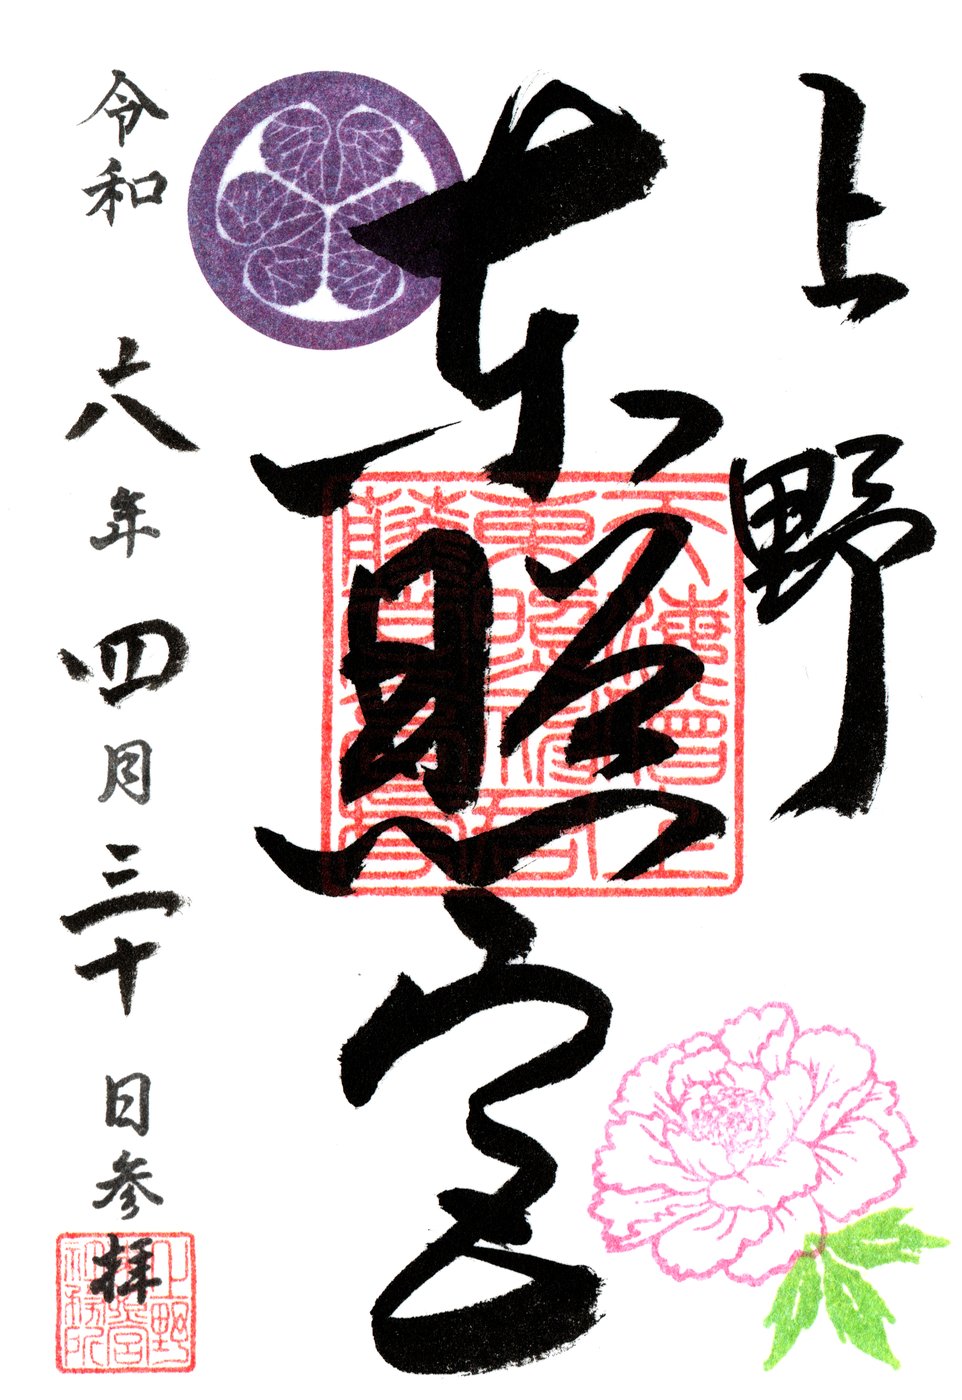 上野
東照宮
令和六年四月三十日参拝
上野東照宮社務所